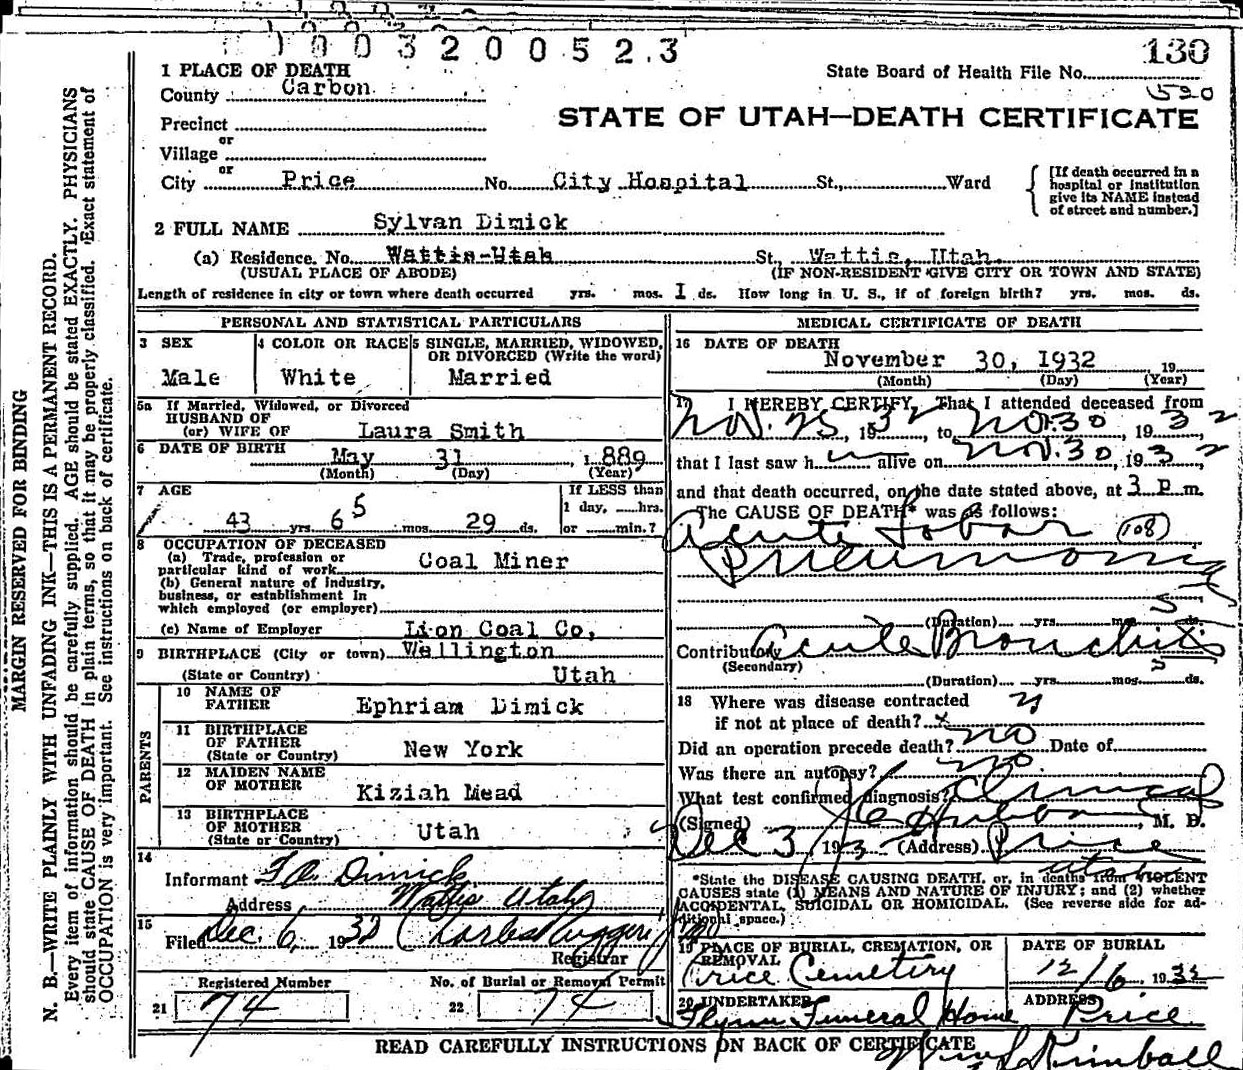 1003200523
130
State Board of Health File No.
520
1 PLACE OF DEATH
County Carbon
STATE OF UTAH—DEATH CERTIFICATE
Precinct
or
Village
or
City Price No. City Hospital St., Ward
[If death occurred in a hospital or institution give its NAME instead of street and number.]
2 FULL NAME Sylvan Dimick
(a) Residence. No. Wattis-Utah St. Wattis, Utah.
(USUAL PLACE OF ABODE) (IF NON-RESIDENT GIVE CITY OR TOWN AND STATE)
Length of residence in city or town where death occurred yrs. mos. 1 ds. How long in U. S., if of foreign birth? yrs. mos. ds.
PERSONAL AND STATISTICAL PARTICULARS
3 SEX
Male
4 COLOR OR RACE
White
5 SINGLE, MARRIED, WIDOWED, OR DIVORCED (Write the word)
Married
5a If Married, Widowed, or Divorced
HUSBAND OF
(or) WIFE OF Laura Smith
6 DATE OF BIRTH May 31, 1889
(Month) (Day) (Year)
7 AGE
43 yrs. 6 5 mos. 29 ds.
If LESS than
1 day, hrs.
or min.?
8 OCCUPATION OF DECEASED
(a) Trade, profession or
particular kind of work Coal Miner
(b) General nature of industry,
business, or establishment in
which employed (or employer)
(c) Name of Employer Lion Coal Co,
9 BIRTHPLACE (City or town) Wellington
(State or Country) Utah
PARENTS
10 NAME OF
FATHER Ephriam Dimick
11 BIRTHPLACE
OF FATHER
(State or Country) New York
12 MAIDEN NAME
OF MOTHER Kiziah Mead
13 BIRTHPLACE
OF MOTHER
(State or Country) Utah
14
Informant Dimick
Address Wattis Utah
15
Filed Dec. 6, 1932 Charles Ruggeri
Registrar
Registered Number
21 74
No. of Burial or Removal Permit
22 74
MEDICAL CERTIFICATE OF DEATH
16 DATE OF DEATH
November 30, 1932 19
(Month) (Day) (Year)
17 I HEREBY CERTIFY, That I attended deceased from
Nov. 25, 1932, to Nov. 30, 1932,
that I last saw him alive on Nov. 30, 1932,
and that death occurred, on the date stated above, at 3 P. m.
The CAUSE OF DEATH* was as follows:
Acute Lobar (108)
Pneumonia
5
(Duration) yrs. mos. ds.
Contributory Acute Bronchitis
(Secondary)
5
(Duration) yrs. mos. ds.
18 Where was disease contracted
if not at place of death?
Did an operation precede death? no Date of
Was there an autopsy? no
What test confirmed diagnosis? Clinical
(Signed) Hubbard, M. D.
Dec 3, 1932 (Address) Price
Utah
*State the DISEASE CAUSING DEATH, or, in deaths from VIOLENT
CAUSES state (1) MEANS AND NATURE OF INJURY; and (2) whether
ACCIDENTAL, SUICIDAL OR HOMICIDAL. (See reverse side for ad-
ditional space.)
19 PLACE OF BURIAL, CREMATION, OR
REMOVAL
Price Cemetery
DATE OF BURIAL
12/6 1932
20 UNDERTAKER
Flynn Funeral Home
ADDRESS
Price
READ CAREFULLY INSTRUCTIONS ON BACK OF CERTIFICATE
Kimball
MARGIN RESERVED FOR BINDING
N. B.—WRITE PLAINLY WITH UNFADING INK—THIS IS A PERMANENT RECORD.
Every item of information should be carefully supplied. AGE should be stated EXACTLY. PHYSICIANS
should state CAUSE OF DEATH in plain terms, so that it may be properly classified. Exact statement of
OCCUPATION is very important. See instructions on back of certificate.